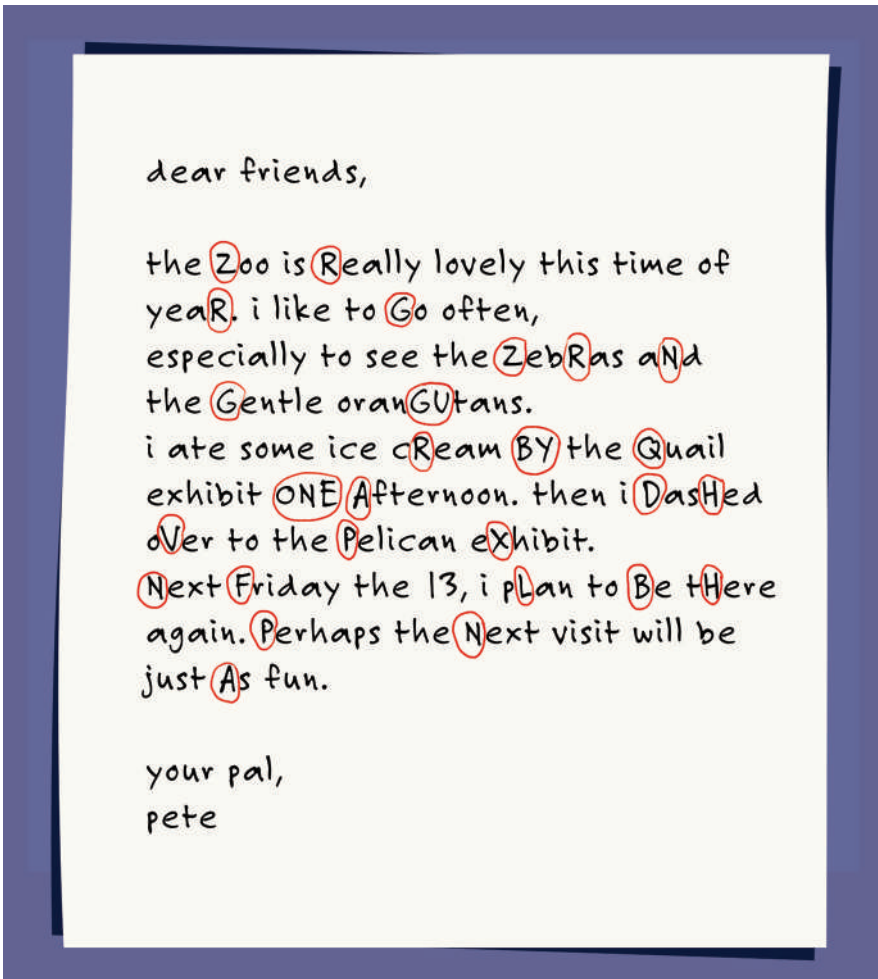 dear friends,
the Zoo is Really lovely this time of
yeaR. i like to Go often,
especially to see the ZebRas aNd
the Gentle oranGUtans.
i ate some ice cReam BY the Quail
exhibit ONE Afternoon. then i DasHed
oVer to the Pelican eXhibit.
Next Friday the 13, i pLan to Be tHere
again. Perhaps the Next visit will be
just As fun.
your pal,
pete